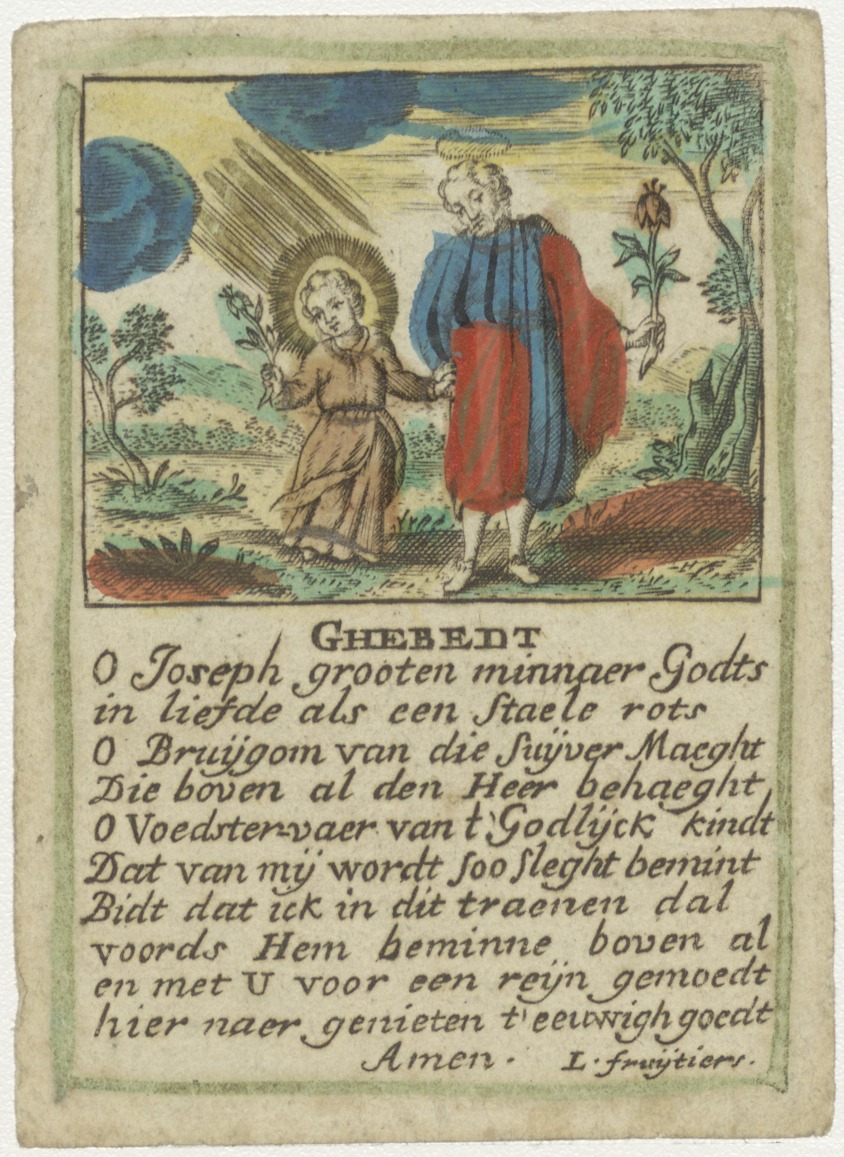 GHEBEDT
O Joseph grooten minnaer Godts
in liefde als een staele rots
O Bruijgom van die suijver Maeght
Die boven al den Heer behaeght
O Voedster-vaer van t'Godlijck kindt
Dat van mij wordt soo sleght bemint
Bidt dat ick in dit traenen dal
voords Hem beminne boven al
en met U voor een reijn gemoedt
hier naer genieten t'eeuwigh goedt
Amen. L. fruijtiers.